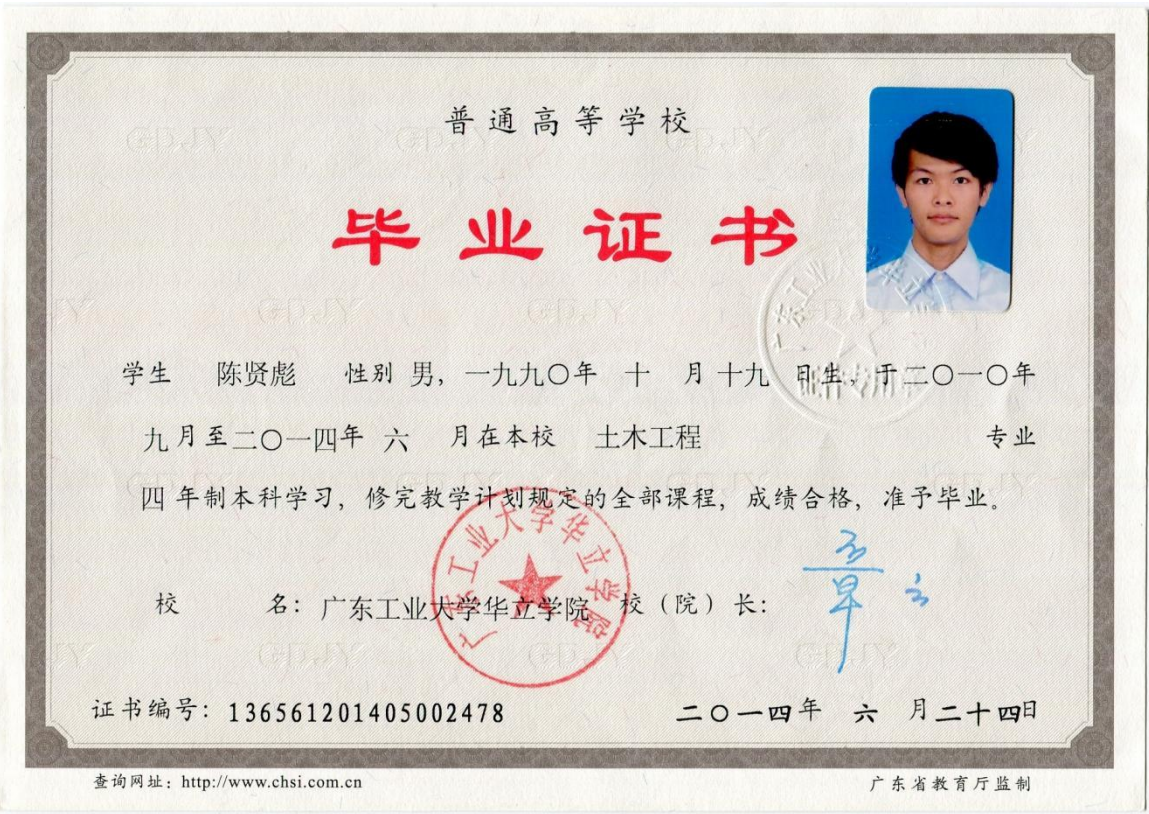 普通高等学校
毕业证书
学生 陈贤彪 性别 男，一九九〇年 十 月 十九 日生，于二〇一〇年
九月至二〇一四年 六 月在本校 土木工程 专业
四 年制本科学习，修完教学计划规定的全部课程，成绩合格，准予毕业。
校 名：广东工业大学华立学院 校（院）长：
广东工业大学华立学院
证书编号：136561201405002478 二〇一四年 六 月二十四日
查询网址：http://www.chsi.com.cn 广东省教育厅监制